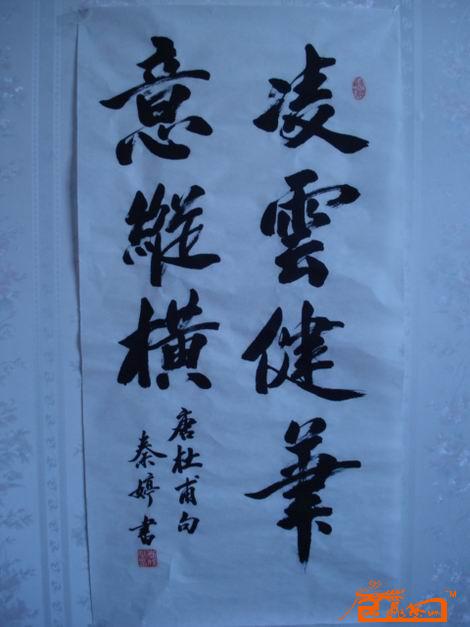 凌雲健筆
意縱橫
唐杜甫句
秦婷書